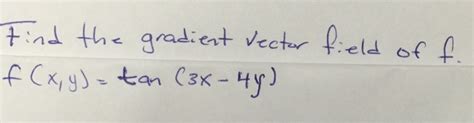 Find the gradient vector field of f.
f(x,y) = tan (3x - 4y)